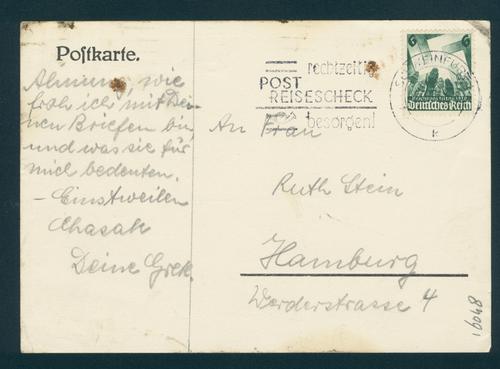 Postkarte.
Ahnung, wie
froh ich mit Dei-
nen Briefen bin,
und was sie für
mich bedeuten.
– Einstweilen
Chasak
Deine Grete.
rechtzeitig
POST
REISESCHECK
besorgen!
SCHWEINFURT
k
6 6
Deutsches Reich
An Frau
Ruth Stein
Hamburg
Werderstrasse 4
16048